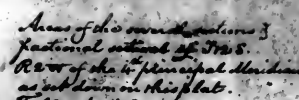 Areas of the several sections &
fractional sections of T12 S.
R2 W of the 4th principal Meridian
as set down on this plat.